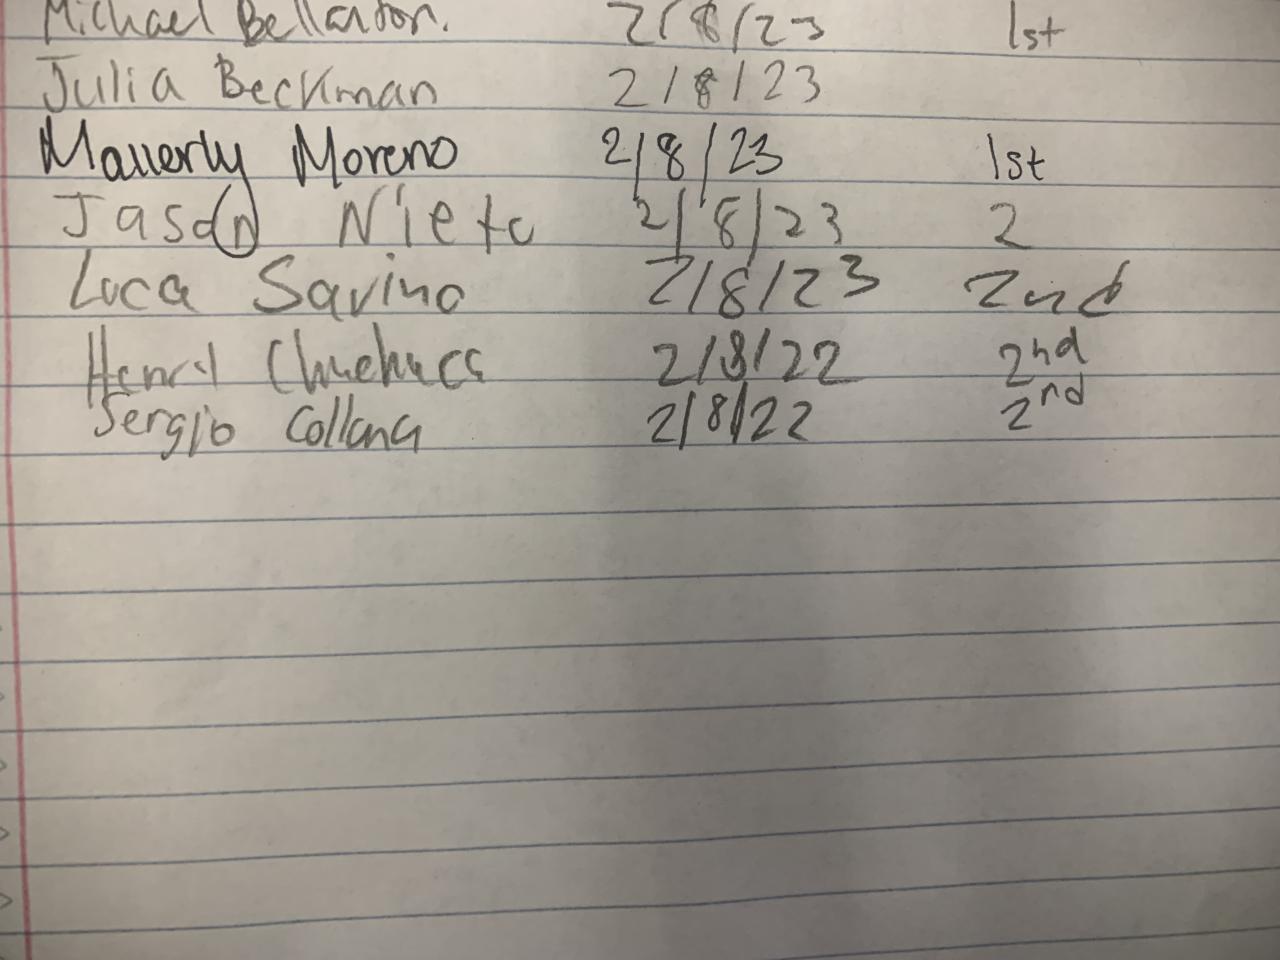 Michael 2/8/23 1st
Julia Beckman 2/8/23
Mauerly Moreno 2/8/23 1st
Jason Nieto 2/8/23 2
Luca Savino 2/8/23 2nd
2/8/22 2nd
Sergio Collana 2/8/22 2nd